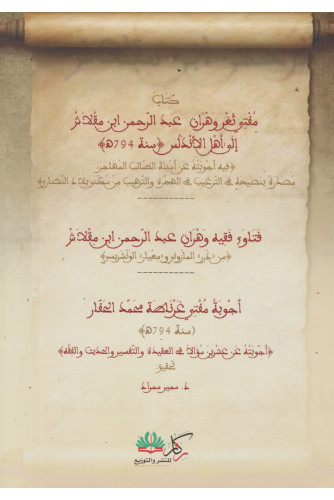 كتاب
مفتي ثغر وهران عبد الرحمن ابن مقلاش
إلى أهل الأندلس ﴿سنة 794ه﴾
﴿فيه أجوبته عن أسئلة الطالب المهاجر،
مصدرة بنصيحة في الترغيب في الهجرة والترهيب من سكنى بلاد النصارى﴾
-----------
فتاوى فقيه وهران عبد الرحمن ابن مقلاش
﴿من درر المازوني ومعيار الونشريسي﴾
-----------
أجوبة مفتي غرناطة محمد الحفار
(سنة 794ه)
﴿أجوبته عن عشرين سؤالا في العقيدة والتفسير والحديث والفقه﴾
تحقيق:
د. سمير سمراد
ركاز
للنشر والتوزيع